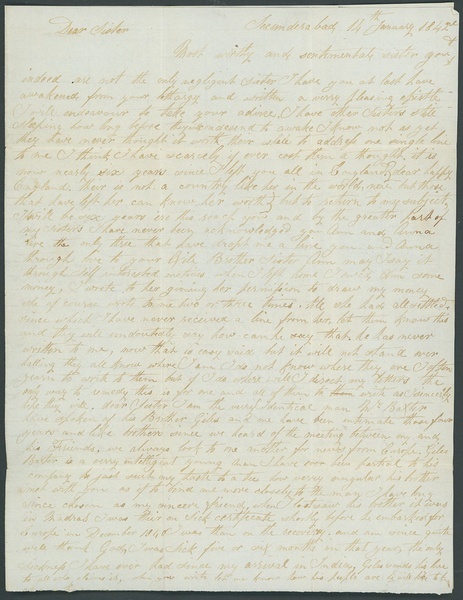 Secunderabad 14th January 1842
Dear Sister
Most witty and sentimental sister you
indeed are not the only negligent sister I have you at last have
awakened from your lethargy and written a very pleasing epistle
I will endeavour to take your advice I have other Sisters still
sleeping how long before they condescend to awake I know not as yet
they have never thought it worth their while to address one single line
to me I think I have scarcely if ever cost them a thought, it is
now nearly six years since I left you all in England, dear happy
England, their is not a country like her in the world, none but those
that have left her can know her worth, but to return to my subject,
I will be six years in this and by the greater part of
my Sisters I have never been acknowledged you Ann and Anna
are the only three that have dropt me a line you and Anna
through love to your Brother Sister Ann may I say it
through self interested motives when I left home I had some
money, I wrote to her giving her permission to draw my money
she of course wrote to me two or three times. All she has
since which I have never received a line from her, let them know this
and they will undoubtedly say how can he say that he has never
written to me, now that is easy said but it will not stand over
telling they all know where I am I do not know where they are I often
yearn to write to them but if I do where will I direct my letters the
only way to remedy this is for one and all of them to write as
like they dear Sister I am the very identical man Mr Baxter
has spoken of his Brother Giles and me have been intimate these four
years and like brothers since we heard of the meeting between my and
his Friends, we always look to one another for news from Europe. Giles
Baxter is a very intelligent young man I have ever been partial to his
company he just suits my taste to a tee how very singular his brother
and should as if to bind me more closely to the man I have long
since chosen as my sincere friend, when I saw his brother it was
in Madras I was there on sick certificate shortly before he embarked for
Europe in December 1840 I was then on the recovery and am since quite
well thank God, I was sick five or six months in that year, the only
sickness I have ever had since my arrival in India, Giles sends his love
to when you write let me know how his people are